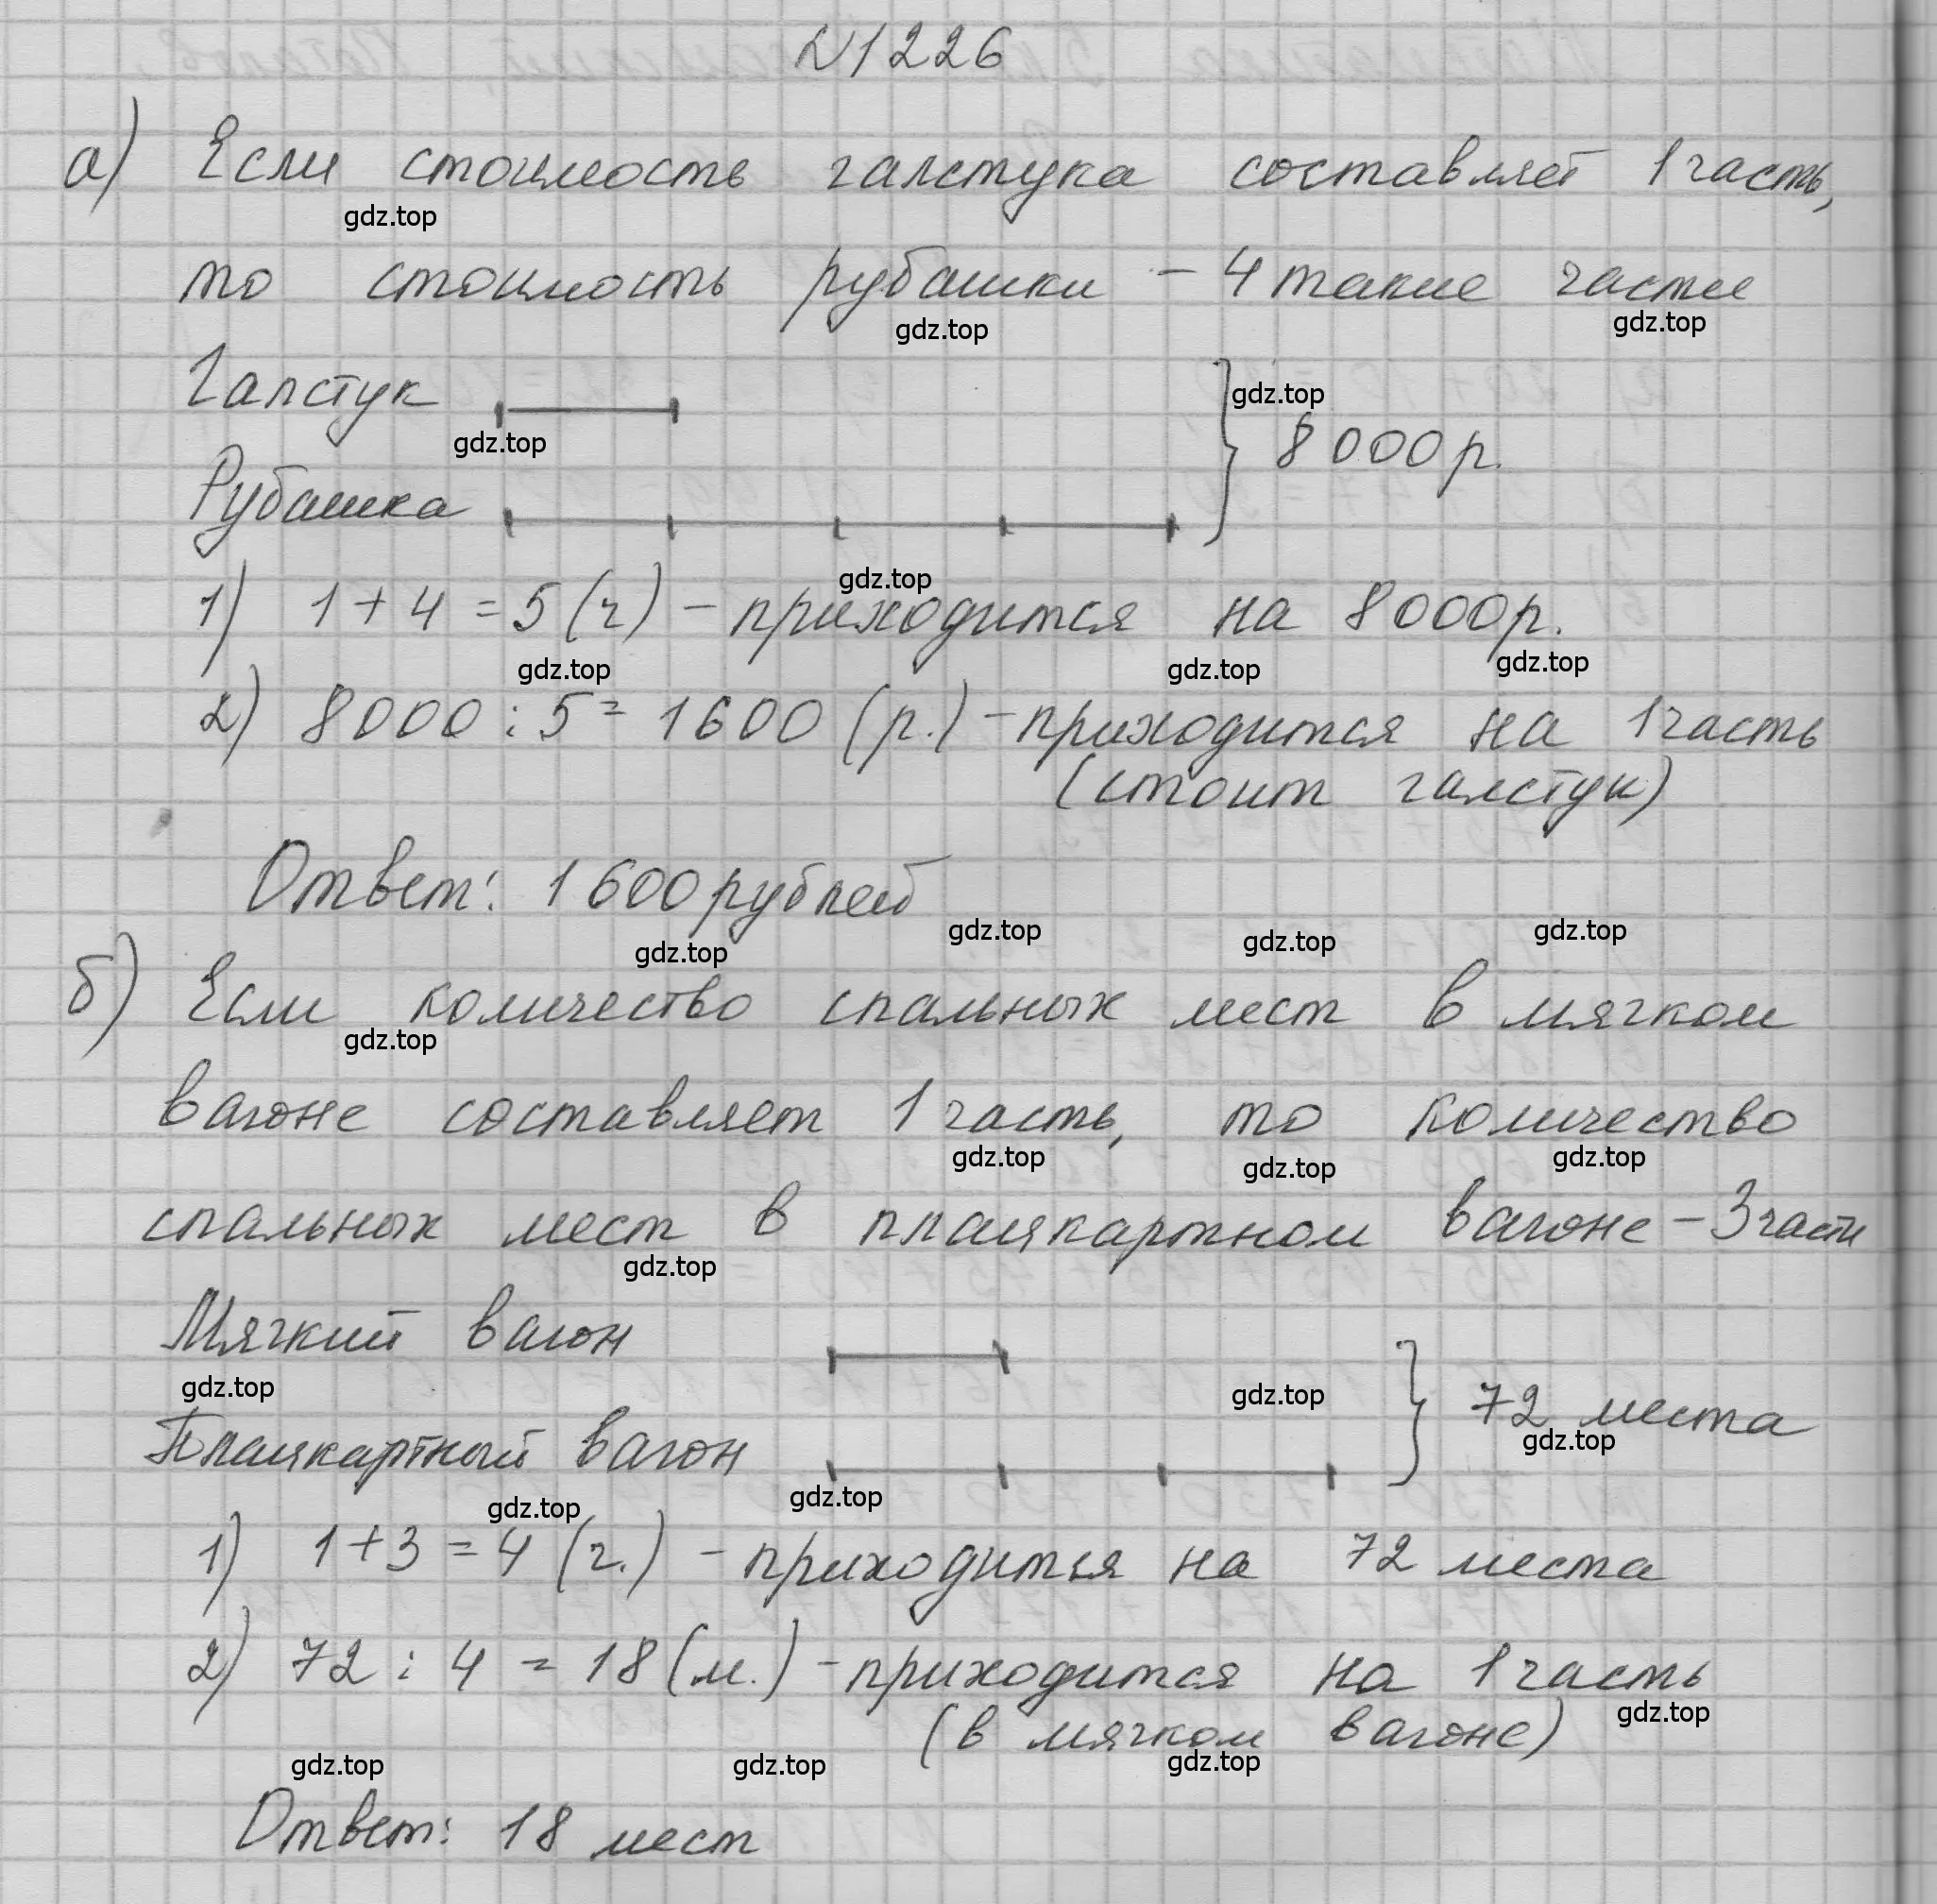 №1226
а) Если стоимость галстука составляет 1 часть,
gdz.top
то стоимость рубашки – 4 такие части
gdz.top gdz.top
Галстук
gdz.top
gdz.top
8000 р.
Рубашка
gdz.top
1) 1 + 4 = 5 (ч) – приходится на 8000 р.
gdz.top gdz.top gdz.top
2) 8000 : 5 = 1600 (р.) – приходится на 1 часть
(стоит галстук)
Ответ: 1600 рублей
gdz.top gdz.top gdz.top gdz.top
б) Если количество спальных мест в мягком
gdz.top
вагоне составляет 1 часть, то количество
gdz.top gdz.top gdz.top
спальных мест в плацкартном вагоне – 3 части
gdz.top
Мягкий вагон
gdz.top gdz.top
72 места
gdz.top
Плацкартный вагон
gdz.top gdz.top
1) 1 + 3 = 4 (ч.) – приходится на 72 места
2) 72 : 4 = 18 (м.) – приходится на 1 часть
gdz.top
(в мягком вагоне)
gdz.top gdz.top gdz.top
Ответ: 18 мест